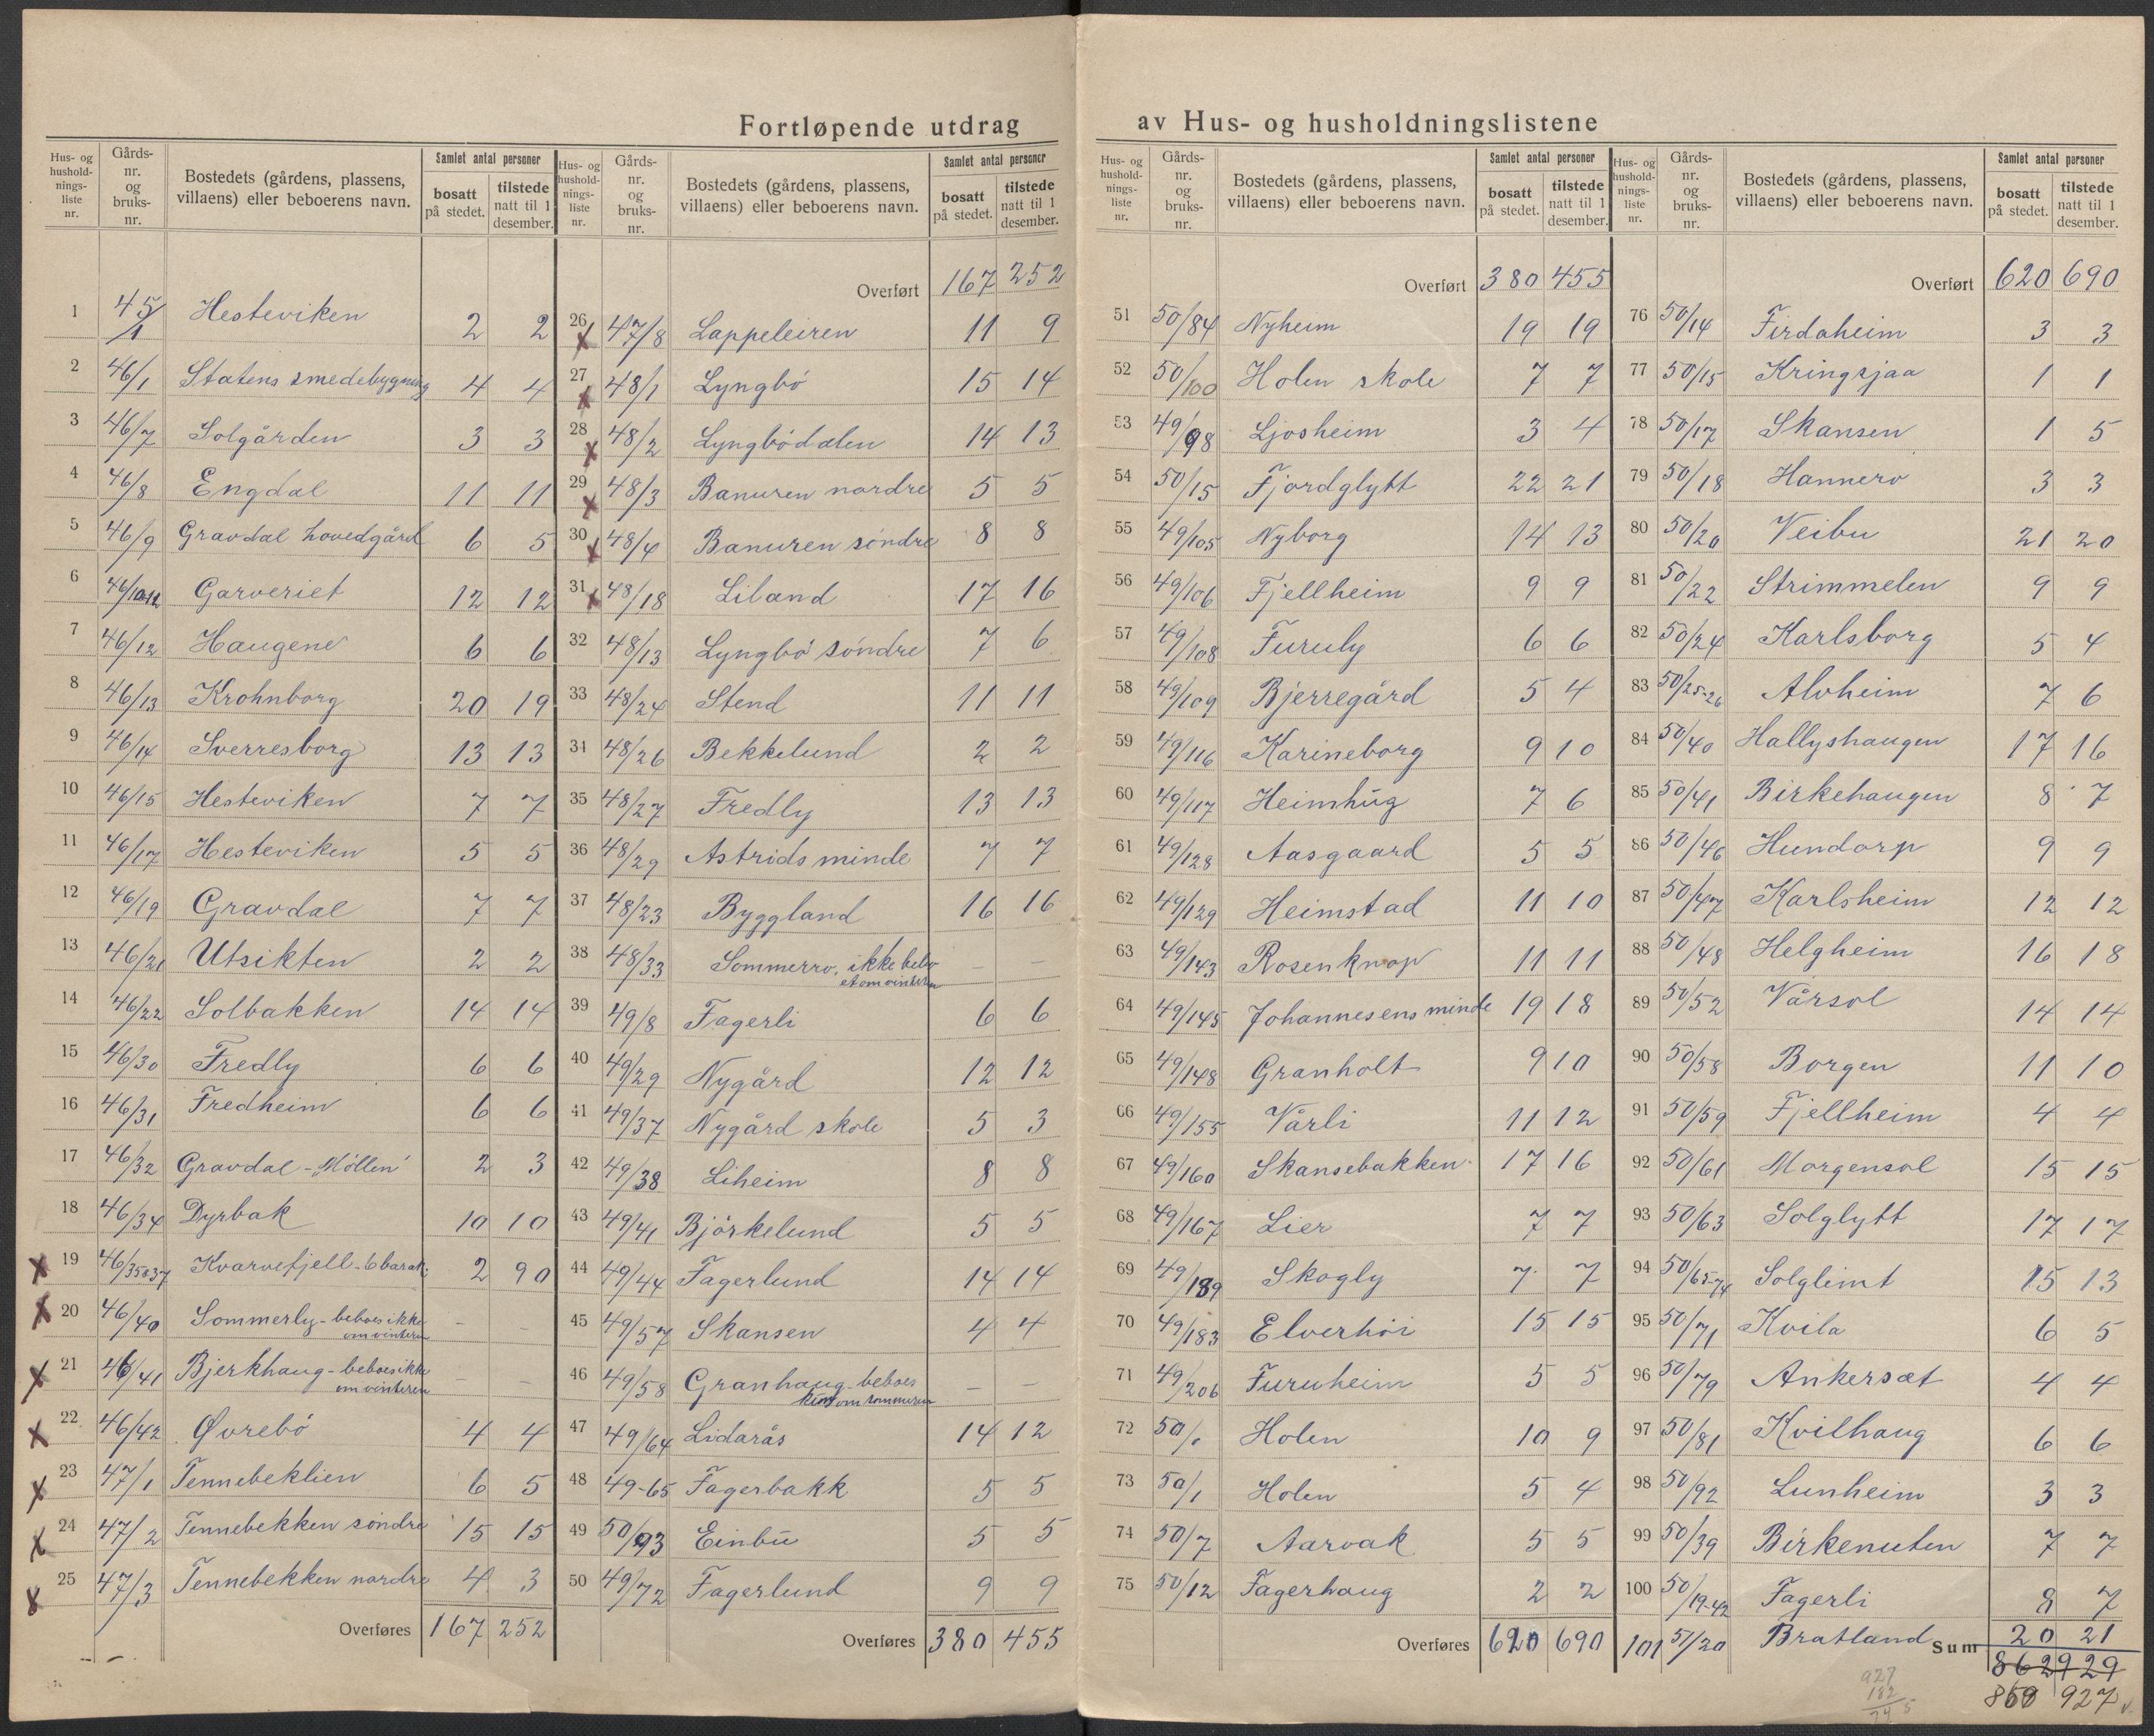 Fortløpende utdrag av Hus- og husholdningslistene
Hus- og hushold-nings-liste nr. | Gårds-nr. og bruks-nr. | Bostedets (gårdens, plassens, villaens) eller beboerens navn. | Samlet antal personer | bosatt på stedet. | tilstede natt til 1 desember.
1 45/1 Hesteviken 2 2
2 46/1 Statens smedebygning 4 4
3 46/7 Solgården 3 3
4 46/8 Engdal 11 11
5 46/9 Gravdal hovedgård 6 5
6 46/10-12 Garveriet 12 12
7 46/12 Haugene 6 6
8 46/13 Krohnborg 20 19
9 46/14 Sverresborg 13 13
10 46/15 Hesteviken 7 7
11 46/17 Hesteviken 5 5
12 46/19 Gravdal 7 7
13 46/21 Utsikten 2 2
14 46/22 Solbakken 14 14
15 46/30 Fredly 6 6
16 46/31 Fredheim 6 6
17 46/32 Gravdal - "Möllen" 2 3
18 46/34 Dyrbak 10 10
x 19 46/35&37 Kvarvefjell - 6 barak. 2 90
x 20 46/40 Sommerly - beboes ikke om vinteren - -
x 21 46/41 Bjerkhaug - beboes ikke om vinteren - -
x 22 46/42 Øvrebö 4 4
x 23 47/1 Tennebeklien 6 5
x 24 47/2 Tennebekken søndre 15 15
x 25 47/3 Tennebekken nordre 4 3
Overføres 167 252
Hus- og hushold-nings-liste nr. | Gårds-nr. og bruks-nr. | Bostedets (gårdens, plassens, villaens) eller beboerens navn. | Samlet antal personer | bosatt på stedet. | tilstede natt til 1 desember.
Overført 167 252
26 x 47/8 Lappeleiren 11 9
27 x 48/1 Lyngbö 15 14
28 x 48/2 Lyngbödalen 14 13
29 x 48/3 Banuren nordre 5 5
30 x 48/4 Banuren söndre 8 8
31 x 48/18 Liland 17 16
32 48/13 Lyngbö söndre 7 6
33 48/24 Stend 11 11
34 48/26 Bekkelund 2 2
35 48/27 Fredly 13 13
36 48/29 Astrids minde 7 7
37 48/23 Byggland 16 16
38 48/33 Sommerro, ikke bebo et om vinteren - -
39 49/8 Fagerli 6 6
40 49/29 Nygård 12 12
41 49/37 Nygård skole 5 3
42 49/38 Liheim 8 8
43 49/41 Björkelund 5 5
44 49/44 Fagerlund 14 14
45 49/57 Skansen 4 4
46 49/58 Granhaug - beboes kun om sommeren - -
47 49/64 Lidarås 14 12
48 49-65 Fagerbakk 5 5
49 50/93 Einbu 5 5
50 49/72 Fagerlund 9 9
Overføres 380 455
Hus- og hushold-nings-liste nr. | Gårds-nr. og bruks-nr. | Bostedets (gårdens, plassens, villaens) eller beboerens navn. | Samlet antal personer | bosatt på stedet. | tilstede natt til 1 desember.
Overført 380 455
51 50/84 Nyheim 19 19
52 50/100 Holen skole 7 7
53 49/98 Ljosheim 3 4
54 50/15 Fjordglytt 22 21
55 49/105 Nyborg 14 13
56 49/106 Fjellheim 9 9
57 49/108 Furuly 6 6
58 49/109 Bjerregård 5 4
59 49/116 Karineborg 9 10
60 49/117 Heimhug 7 6
61 49/128 Aasgaard 5 5
62 49/129 Heimstad 11 10
63 49/143 Rosenknop 11 11
64 49/145 Johannesens minde 19 18
65 49/148 Granholt 9 10
66 49/155 Vårli 11 12
67 49/160 Skansebakken 17 16
68 49/167 Lier 7 7
69 49/189 Skogly 7 7
70 49/183 Elverhöi 15 15
71 49/206 Furuheim 5 5
72 50/1 Holen 10 9
73 50/1 Holen 5 4
74 50/7 Aarvak 5 5
75 50/12 Fagerhaug 2 2
Overføres 620 690
Hus- og hushold-nings-liste nr. | Gårds-nr. og bruks-nr. | Bostedets (gårdens, plassens, villaens) eller beboerens navn. | Samlet antal personer | bosatt på stedet. | tilstede natt til 1 desember.
Overført 620 690
76 50/14 Firdaheim 3 3
77 50/15 Kringsjaa 1 1
78 50/17 Skansen 1 5
79 50/18 Hannero 3 3
80 50/20 Veibu 21 20
81 50/22 Strimmelen 9 9
82 50/24 Karlsborg 5 4
83 50/25-26 Alvheim 7 6
84 50/40 Hallyshaugen 17 16
85 50/41 Birkehaugen 8 7
86 50/46 Hundorp 9 9
87 50/47 Karlsheim 12 12
88 50/48 Helgheim 16 18
89 50/52 Vårsol 14 14
90 50/58 Borgen 11 10
91 50/59 Fjellheim 4 4
92 50/61 Morgensol 15 15
93 50/63 Solglytt 17 17
94 50/65-74 Solglimt 15 13
95 50/71 Kvila 6 5
96 50/79 Ankersæt 4 4
97 50/81 Kvilhaug 6 6
98 50/92 Lunheim 3 3
99 50/39 Birkenuten 7 7
100 50/19-42 Fagerli 8 7
101 51/20 Bratland 20 21
Sum 862 929
859 927
927
182
745